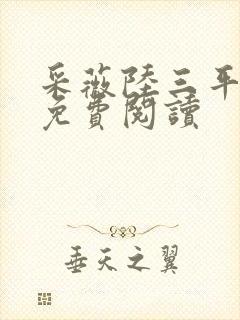 采薇陸三平
免費閱讀
垂天之翼